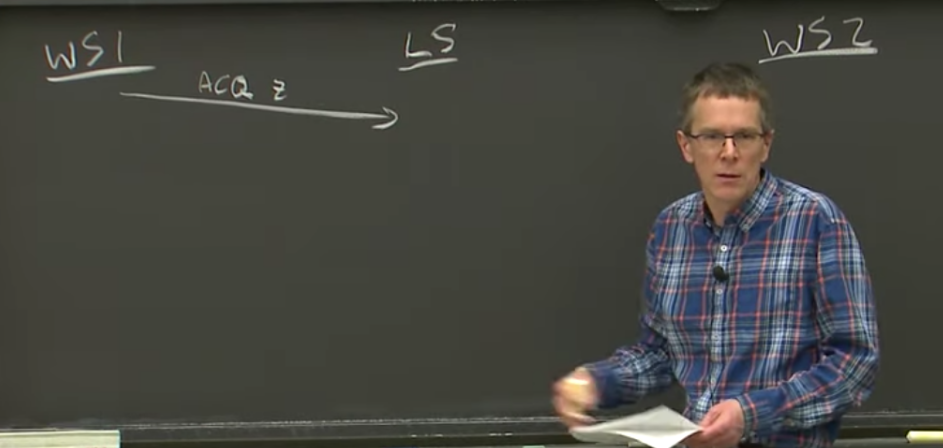 WS1 LS WS2
ACQ Z